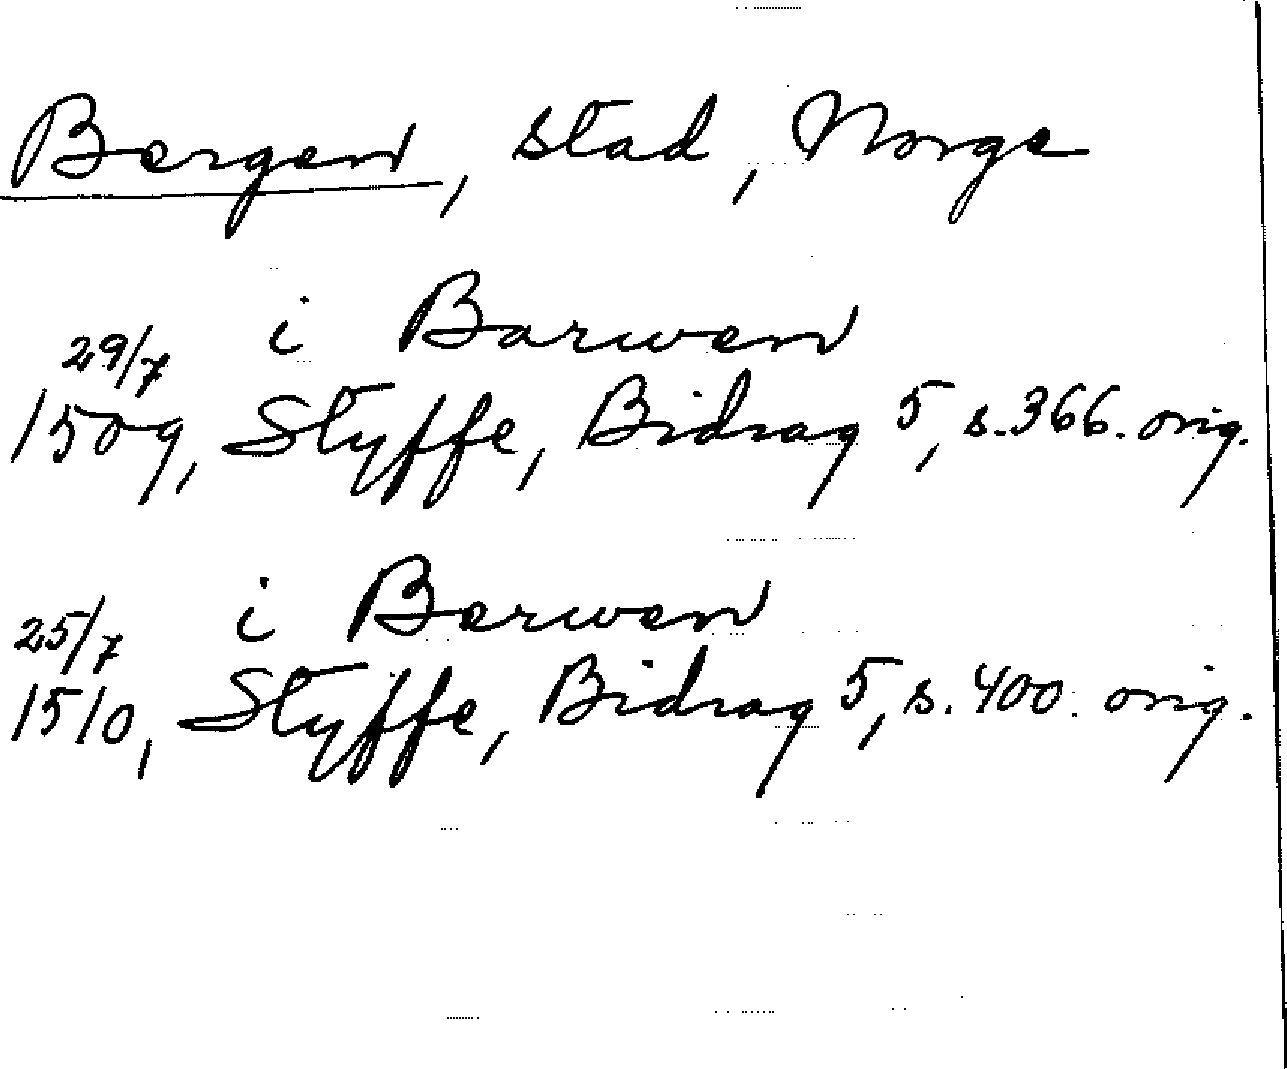 Bergen, stad, Norge
i Barwen
29/7
1509, Styffe, Bidrag 5, s. 366. orig.
i Berwen
25/7
1510, Styffe, Bidrag 5, s. 400. orig.